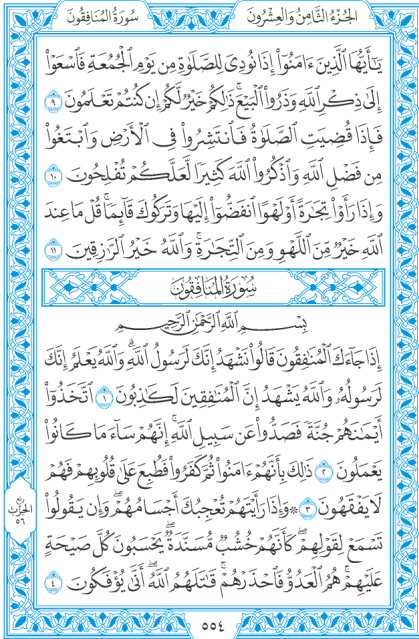 الجزء الثامن والعشرون
سورة المنافقون
يَٰٓأَيُّهَا ٱلَّذِينَ ءَامَنُوٓا۟ إِذَا نُودِىَ لِلصَّلَوٰةِ مِن يَوْمِ ٱلْجُمُعَةِ فَٱسْعَوْا۟
إِلَىٰ ذِكْرِ ٱللَّهِ وَذَرُوا۟ ٱلْبَيْعَ ۚ ذَٰلِكُمْ خَيْرٌ لَّكُمْ إِن كُنتُمْ تَعْلَمُونَ ٩
فَإِذَا قُضِيَتِ ٱلصَّلَوٰةُ فَٱنتَشِرُوا۟ فِى ٱلْأَرْضِ وَٱبْتَغُوا۟
مِن فَضْلِ ٱللَّهِ وَٱذْكُرُوا۟ ٱللَّهَ كَثِيرًا لَّعَلَّكُمْ تُفْلِحُونَ ١٠
وَإِذَا رَأَوْا۟ تِجَٰرَةً أَوْ لَهْوًا ٱنفَضُّوٓا۟ إِلَيْهَا وَتَرَكُوكَ قَآئِمًا ۚ قُلْ مَا عِندَ
ٱللَّهِ خَيْرٌ مِّنَ ٱللَّهْوِ وَمِنَ ٱلتِّجَٰرَةِ ۚ وَٱللَّهُ خَيْرُ ٱلرَّٰزِقِينَ ١١
سورة المنافقون
بِسْمِ ٱللَّهِ ٱلرَّحْمَٰنِ ٱلرَّحِيمِ
إِذَا جَآءَكَ ٱلْمُنَٰفِقُونَ قَالُوا۟ نَشْهَدُ إِنَّكَ لَرَسُولُ ٱللَّهِ ۗ وَٱللَّهُ يَعْلَمُ إِنَّكَ
لَرَسُولُهُۥ وَٱللَّهُ يَشْهَدُ إِنَّ ٱلْمُنَٰفِقِينَ لَكَٰذِبُونَ ١ ٱتَّخَذُوٓا۟
أَيْمَٰنَهُمْ جُنَّةً فَصَدُّوا۟ عَن سَبِيلِ ٱللَّهِ ۚ إِنَّهُمْ سَآءَ مَا كَانُوا۟
يَعْمَلُونَ ٢ ذَٰلِكَ بِأَنَّهُمْ ءَامَنُوا۟ ثُمَّ كَفَرُوا۟ فَطُبِعَ عَلَىٰ قُلُوبِهِمْ فَهُمْ
لَا يَفْقَهُونَ ٣ ۞ وَإِذَا رَأَيْتَهُمْ تُعْجِبُكَ أَجْسَامُهُمْ ۖ وَإِن يَقُولُوا۟
تَسْمَعْ لِقَوْلِهِمْ ۖ كَأَنَّهُمْ خُشُبٌ مُّسَنَّدَةٌ ۖ يَحْسَبُونَ كُلَّ صَيْحَةٍ
عَلَيْهِمْ ۚ هُمُ ٱلْعَدُوُّ فَٱحْذَرْهُمْ ۚ قَٰتَلَهُمُ ٱللَّهُ ۖ أَنَّىٰ يُؤْفَكُونَ ٤
ربع
الحزب
٥٦
٥٥٤